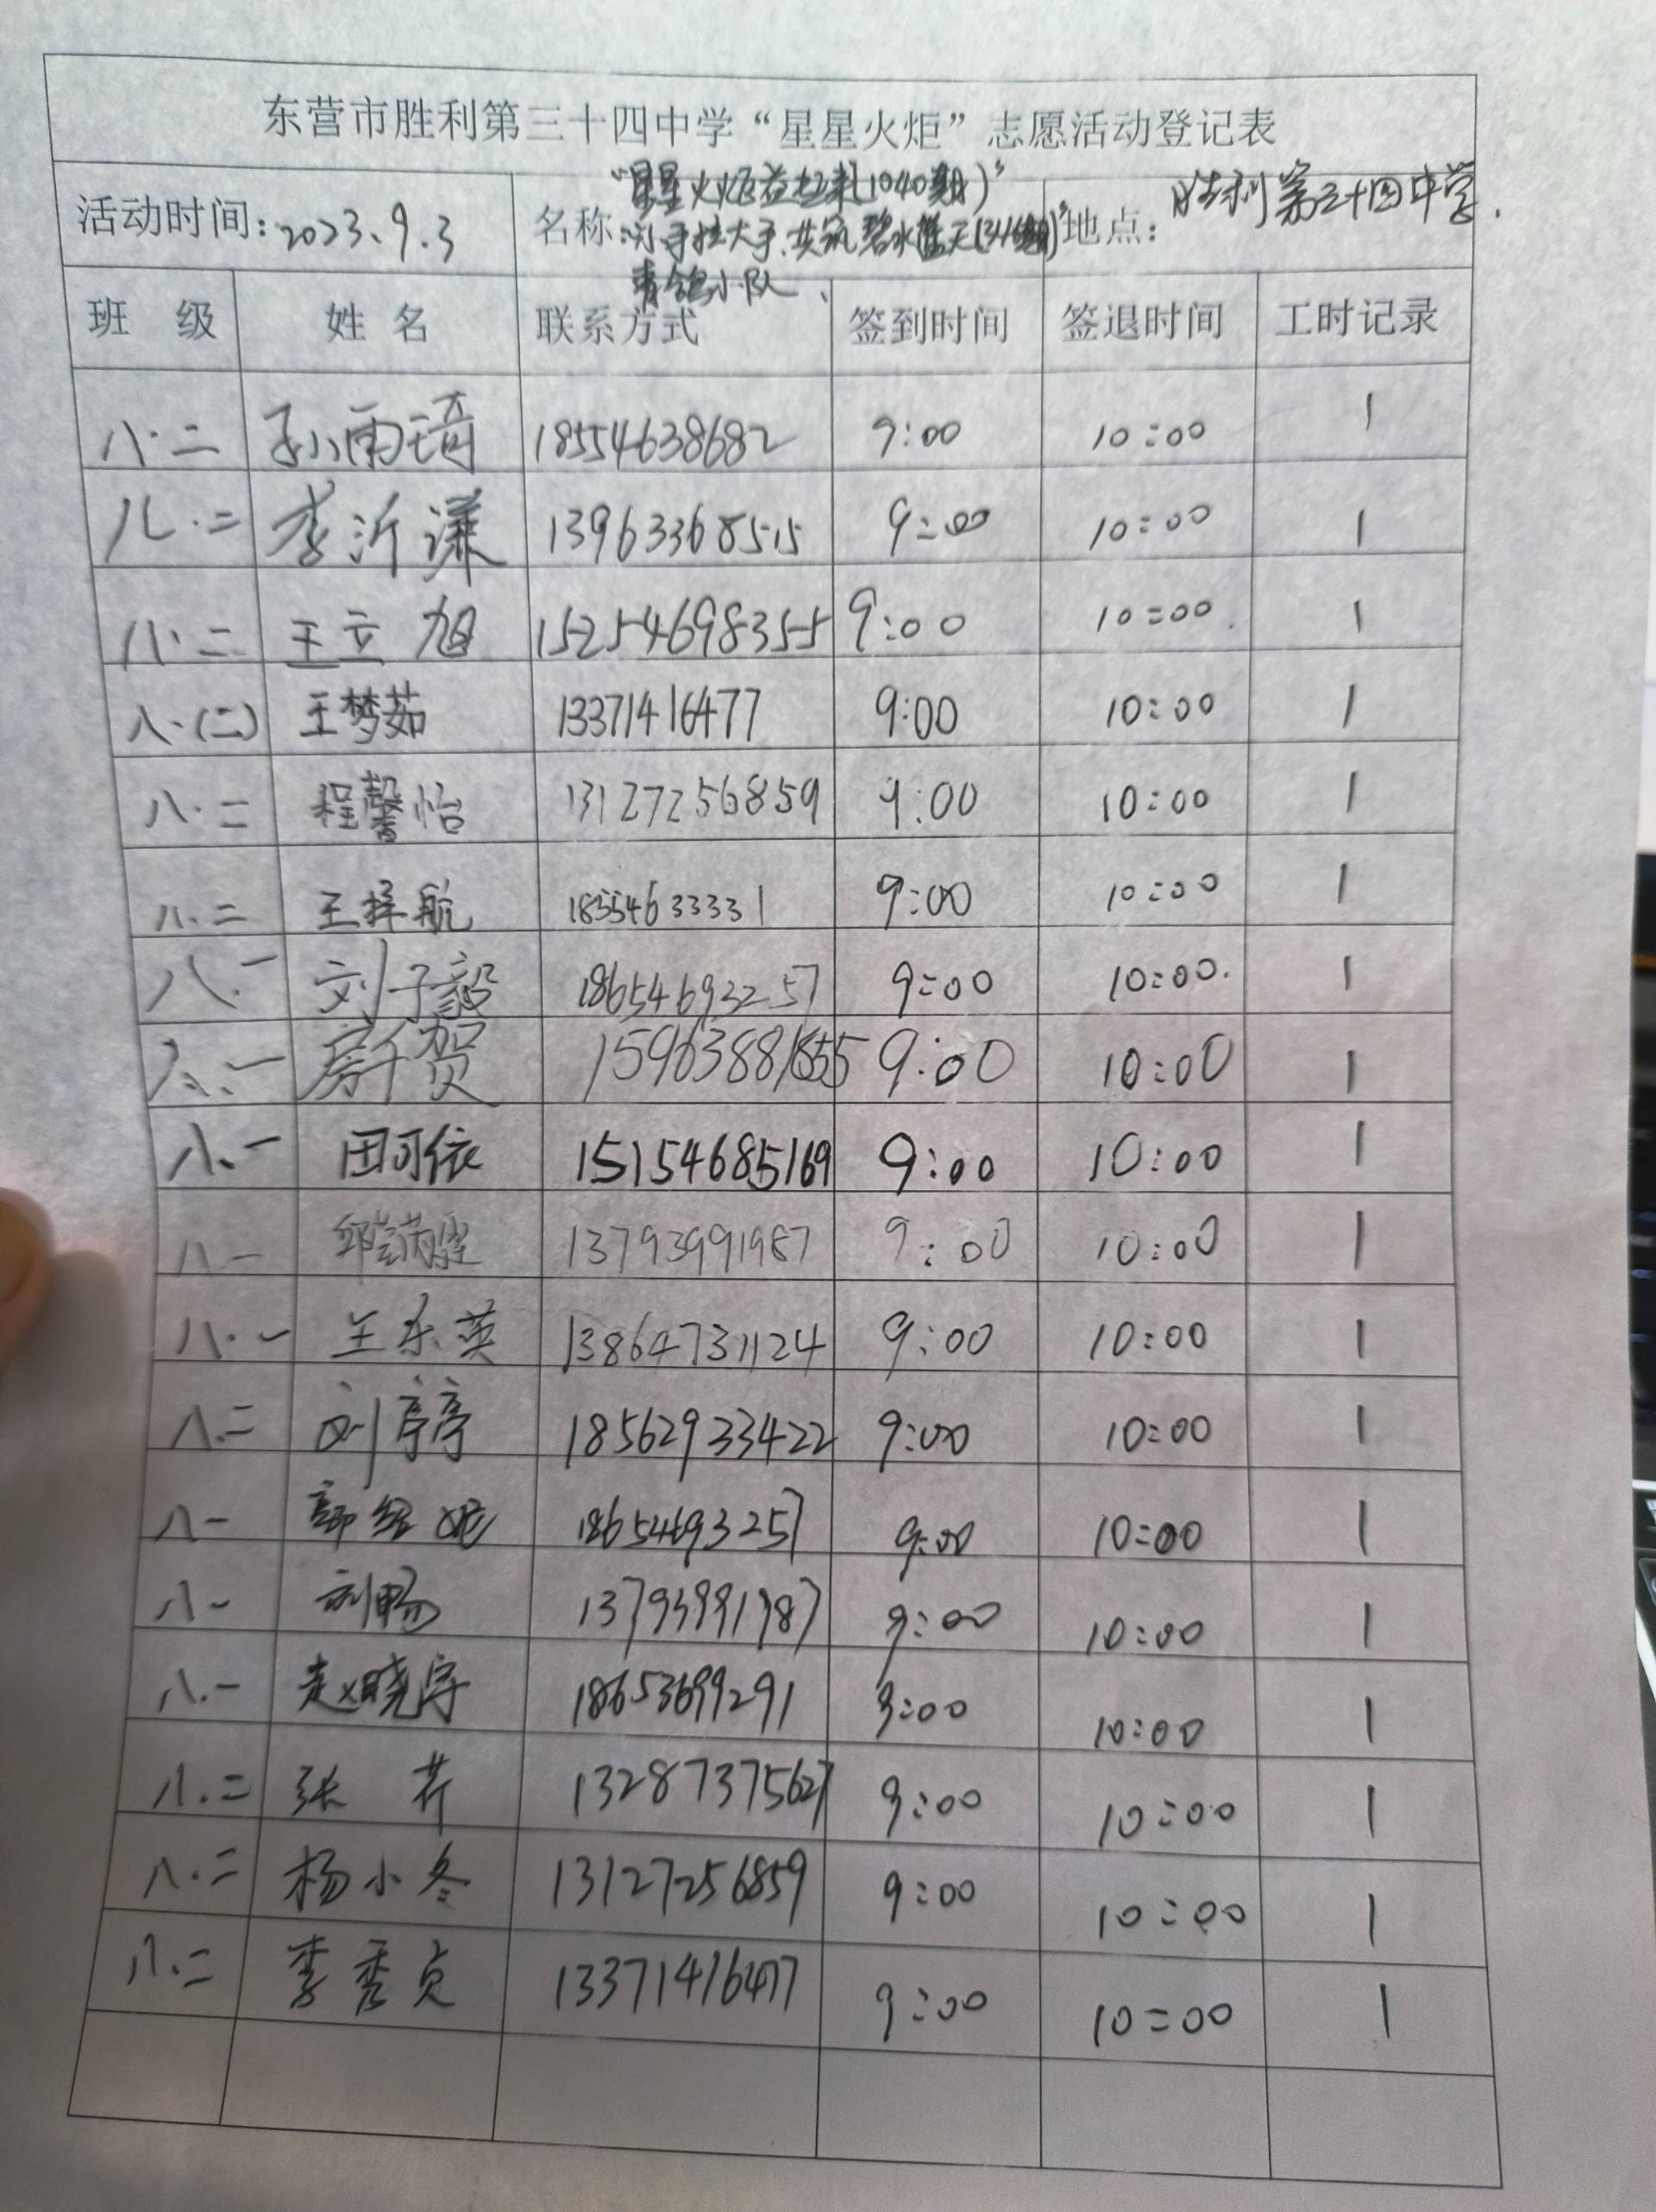 东营市胜利第三十四中学“星星火炬”志愿活动登记表
活动时间：2023.9.3 名称：“星星火炬益起来(1040期)” 小手拉大手.共筑碧水蓝天(346期)” 青鸽小队、 地点：胜利第三十四中学.
班 级 姓 名 联系方式 签到时间 签退时间 工时记录
八·二 孙雨琦 18554638682 9:00 10:00 1
八·二 李沂谦 13963368515 9:00 10:00 1
八·二 王立旭 15254698355 9:00 10:00 1
八·(二) 王梦茹 13371416477 9:00 10:00 1
八·二 程馨怡 13127256859 9:00 10:00 1
八.二 王择航 18554633331 9:00 10:00 1
八.一 刘子毅 18654693257 9:00 10:00. 1
八.一 房千贺 15963881855 9:00 10:00 1
八、一 田可依 15154685169 9:00 10:00 1
八一 13793991987 9:00 10:00 1
八·一 王东英 13864731124 9:00 10:00 1
八.二 刘亭亭 18562933422 9:00 10:00 1
八一 18654693257 9:00 10:00 1
八一 刘畅 13793991987 9:00 10:00 1
八.一 赵晓宇 18653699291 9:00 10:00 1
八.二 张芹 13287375627 9:00 10:00 1
八.二 杨小冬 13127256859 9:00 10:00 1
八.二 李秀贞 13371416477 9:00 10:00 1